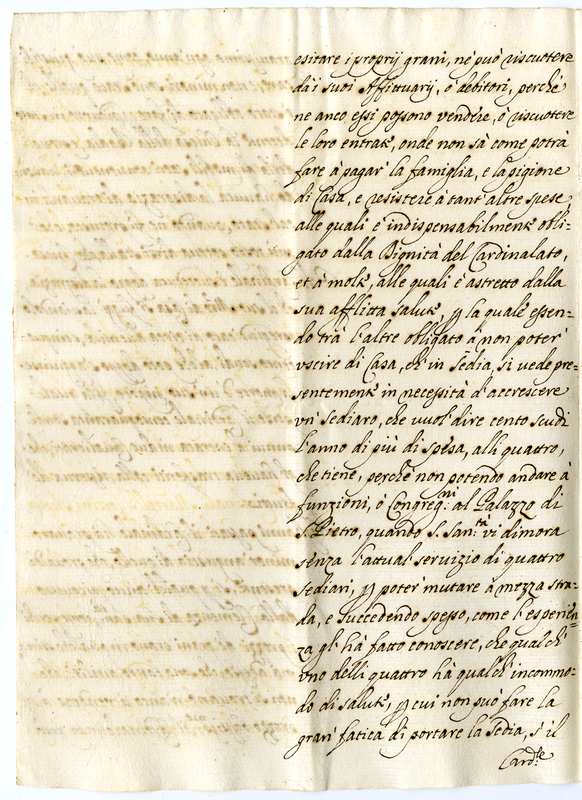 esitare i proprij grani, nè può riscuotere
da i suoi Affittuarij, ò debitori, perche
ne anco essi possono vendere, ò riscuotere
le loro entrate, onde non sà come potrà
fare à pagar la famiglia, e la pigione
di Casa, e resistere à tant'altre spese,
alle quali è indispensabilmente obli-
gato dalla Dignità del Cardinalato,
et à molte, alle quali è astretto dalla
sua afflitta salute, p la quale essen-
do trà l'altre obligato à non poter
uscire di Casa, ch'in sedia, si vede pre-
sentemente in necessità d'accrescere
un sediaro, che vuol dire cento scudi
l'anno di più di spesa, alli quattro,
che tiene, perche non potendo andare à
funzioni, ò Congreg.ni al Palazzo di
S. Pietro, quando S. San.tà vi dimora
senza l'attual servizio di quattro
sediari, p poter mutare à mezza stra-
da, e succedendo spesso, come l'esperien-
za gl'hà fatto conoscere, che qualch'
uno delli quattro hà qualch'incommo-
do di salute, p cui non può fare la
gran fatica di portare la sedia, s'il
Card.le